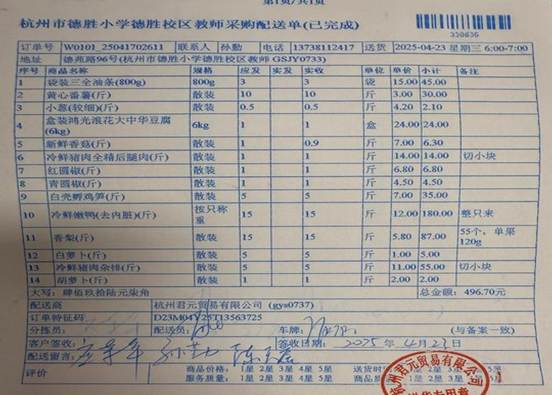 第1页/共1页
杭州市德胜小学德胜校区教师采购配送单(已完成)
330636
订单号 W0101_25041702611 联系人 孙勤 电话 13738112417 送货 2025-04-23 星期三 6:00-7:00
地址 德苑路96号(杭州市德胜小学德胜校区教师 GSJY0733)
序号 商品名称 规格 应发 实发 实收 单位 单价 小计 备注
1 袋装三全油条(800g) 800g 3 3 袋 15.00 45.00
2 黄心番薯(斤) 散装 10 10 斤 3.00 30.00
3 小葱(较细)(斤) 散装 0.5 0.5 斤 4.20 2.10
4 盒装鸿光浪花大中华豆腐(6kg) 6kg 1 1 盒 24.00 24.00
5 新鲜香菇(斤) 散装 1 0.9 斤 7.00 6.30
6 冷鲜猪肉全精后腿肉(斤) 散装 1 1 斤 14.00 14.00 切小块
7 红圆椒(斤) 散装 1 1 斤 6.80 6.80
8 青圆椒(斤) 散装 1 1 斤 4.50 4.50
9 白壳孵鸡笋(斤) 散装 5 5 斤 7.00 35.00
10 冷鲜嫩鸭(去内脏)(斤) 按只称重 15 15 斤 12.00 180.00 整只来
11 香梨(斤) 散装 15 15 斤 5.80 87.00 55个，单果120g
12 白萝卜(斤) 散装 5 5 斤 1.00 5.00
13 冷鲜猪肉杂排(斤) 散装 5 5 斤 11.00 55.00 切小块
14 胡萝卜(斤) 散装 1 1 斤 2.00 2.00
大写：肆佰玖拾陆元柒角 总金额：496.70元
配送商 杭州君元贸易有限公司 (gys0737)
订单特征码 D23M04Y25T13563725
分拣员： 配送员： 车牌： (与备案一致)
客户签收： 签收日期： 2025年4月23日
配送留言： 孙勤
评价 商品价格： 1星 2星 3星 4星 5星 送货时
服务质量： 1星 2星 3星 4星 5星 商品
杭州君元贸易有限公司